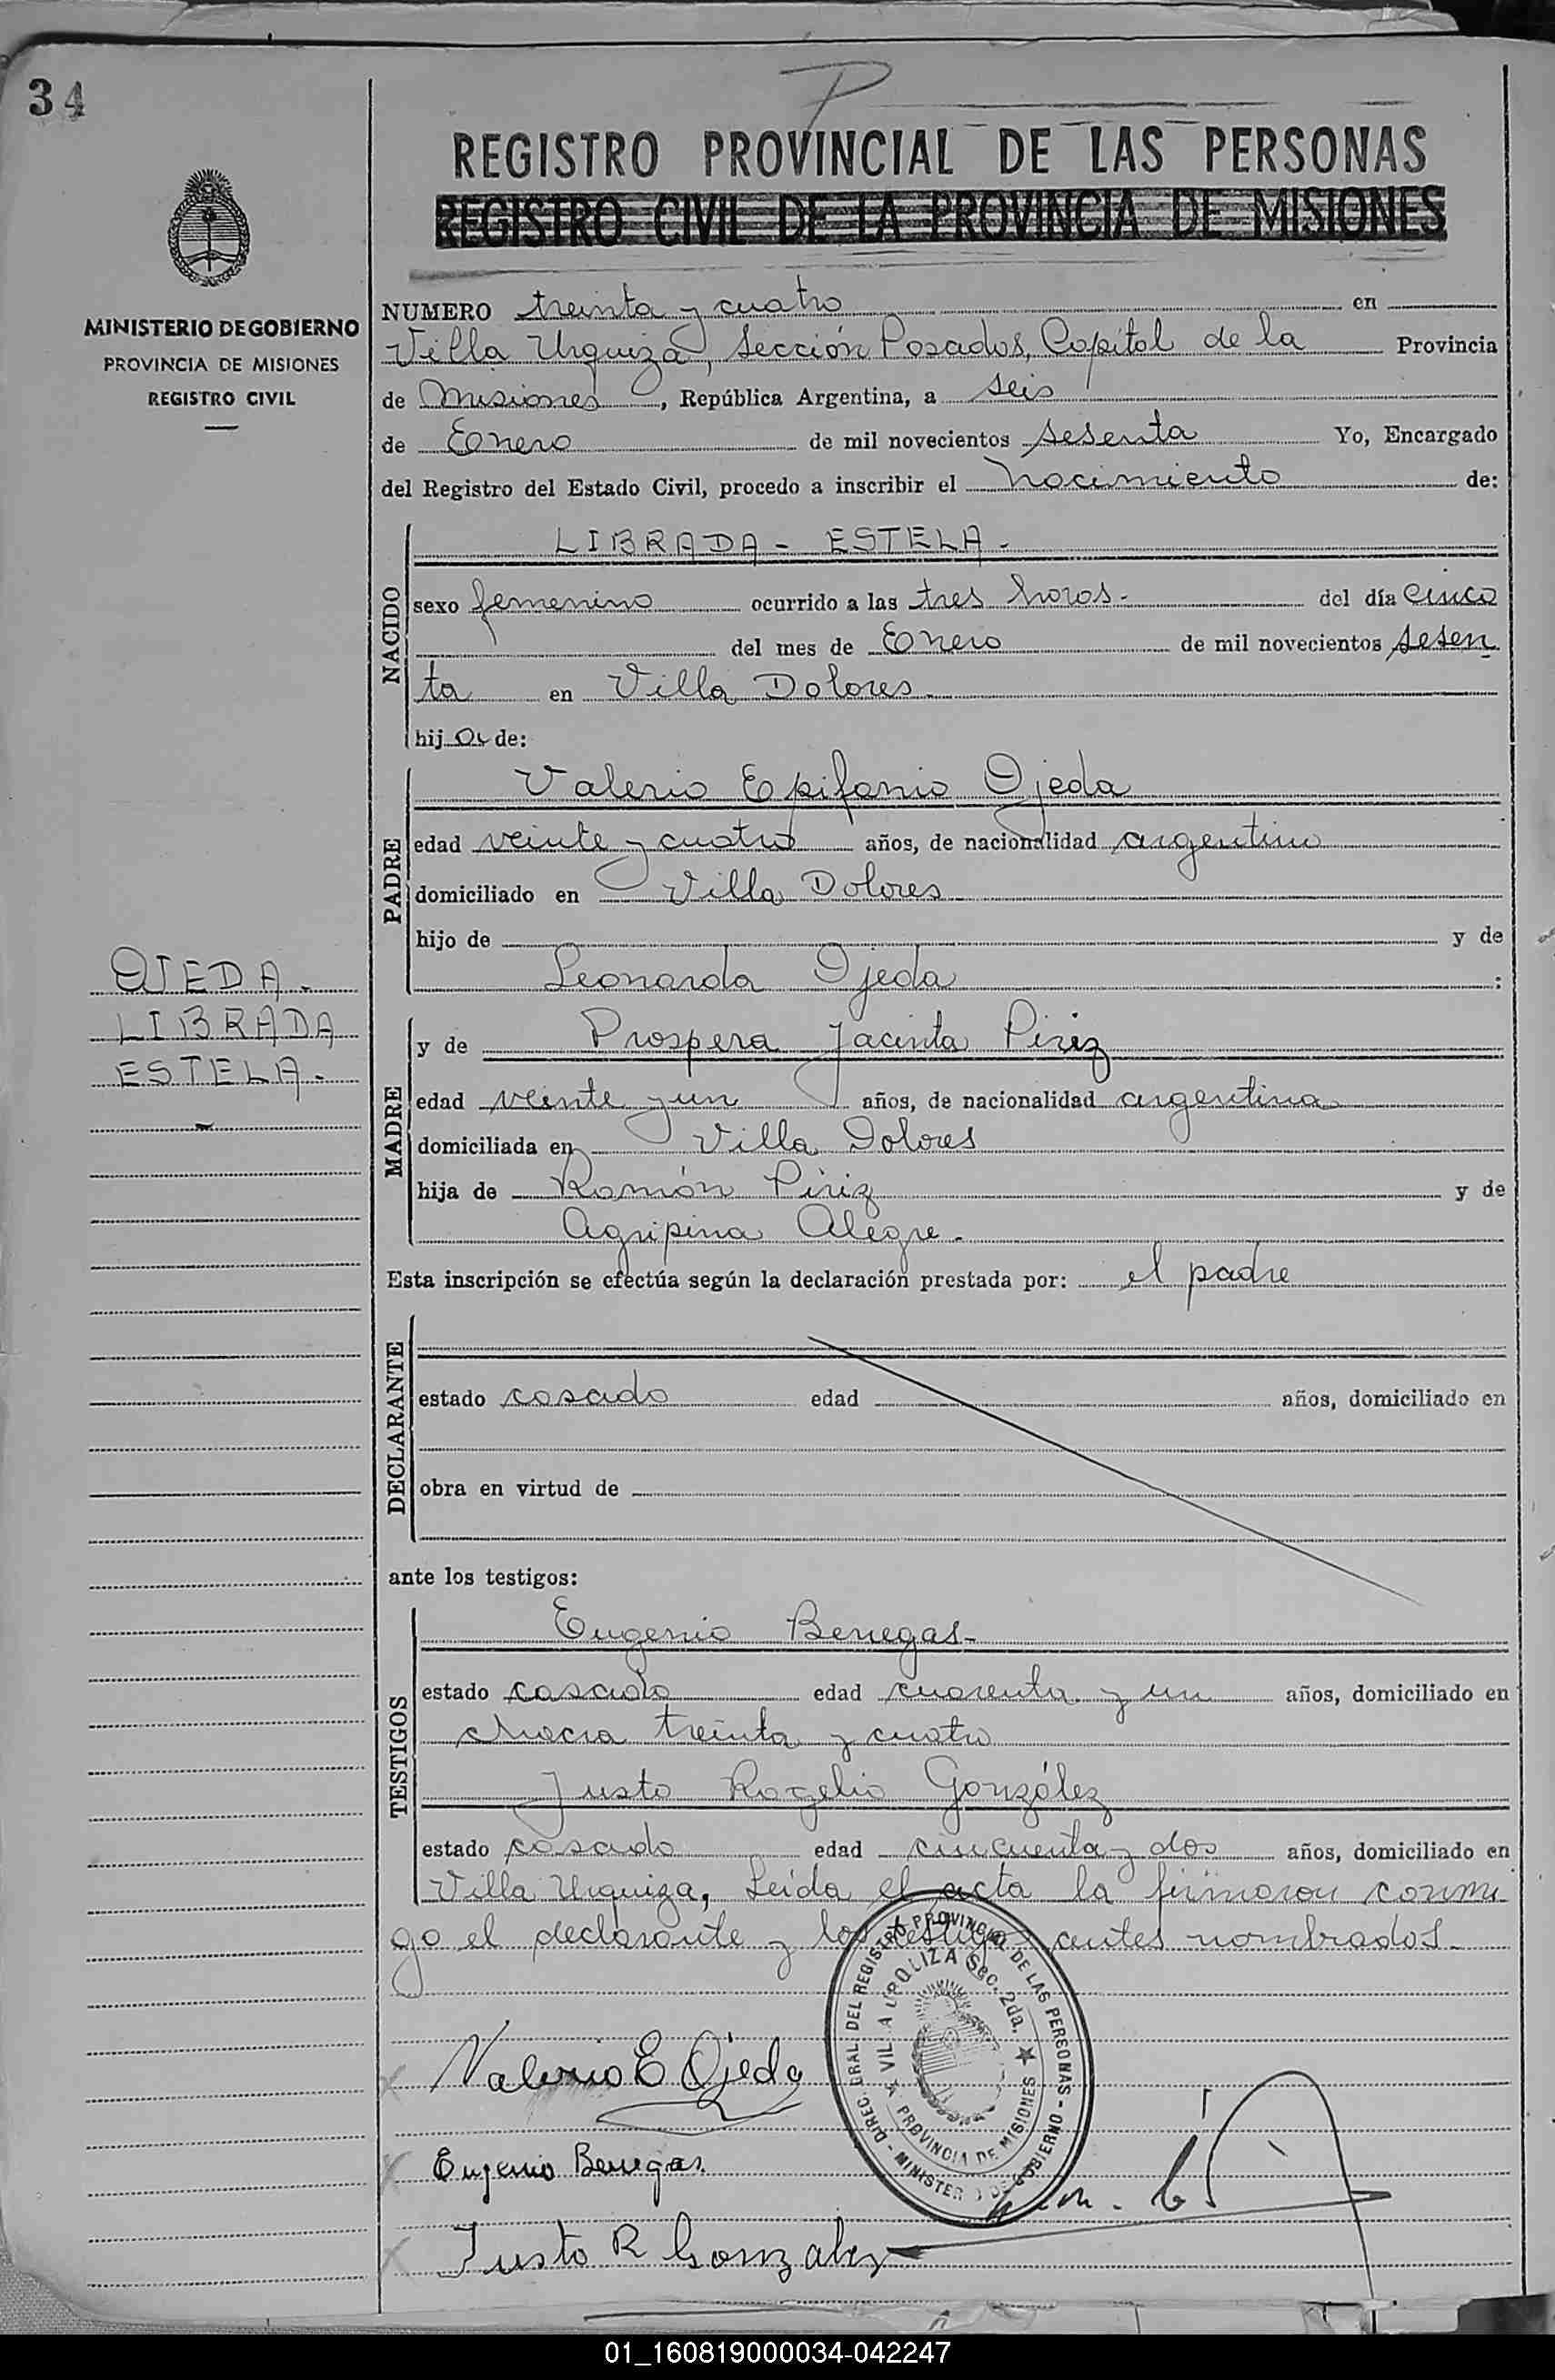 34
P
REGISTRO PROVINCIAL DE LAS PERSONAS
REGISTRO CIVIL DE LA PROVINCIA DE MISIONES
MINISTERIO DE GOBIERNO
PROVINCIA DE MISIONES
REGISTRO CIVIL
NUMERO treinta y cuatro en
Villa Urquiza, Sección Posadas, Capital de la Provincia
de Misiones, República Argentina, a seis
de Enero de mil novecientos sesenta Yo, Encargado
del Registro del Estado Civil, procedo a inscribir el nacimiento de:
NACIDO
LIBRADA - ESTELA -
sexo femenino ocurrido a las tres horas - del día cinco
del mes de Enero de mil novecientos sesen
ta en Villa Dolores
hija de:
PADRE
Valerio Epifanio Ojeda
edad veinte y cuatro años, de nacionalidad argentino
domiciliado en Villa Dolores
hijo de y de
Leonarda Ojeda :
OJEDA.
LIBRADA
ESTELA.-
MADRE
y de Prospera Jacinta Piriz
edad veinte y un años, de nacionalidad argentina
domiciliada en Villa Dolores
hija de Ramón Piriz y de
Agripina Alegre.
Esta inscripción se efectúa según la declaración prestada por: el padre
DECLARANTE
estado casado edad años, domiciliado en
obra en virtud de
ante los testigos:
TESTIGOS
Eugenio Benegas-
estado casado edad cuarenta y un años, domiciliado en
chacra treinta y cuatro
Justo Rogelio González
estado casado edad cincuenta y dos años, domiciliado en
Villa Urquiza, Leida el acta la firmaron conmi
go el declarante y los testigos antes nombrados.
DIREC. GRAL. DEL REGISTRO PROVINCIAL DE LAS PERSONAS - MINISTERIO DE GOBIERNO -
VILLA URQUIZA Sec. 2da. ★ PROVINCIA DE MISIONES ★
Valerio E Ojeda
Eugenio Benegas
Justo R Gonzalez
01_160819000034-042247